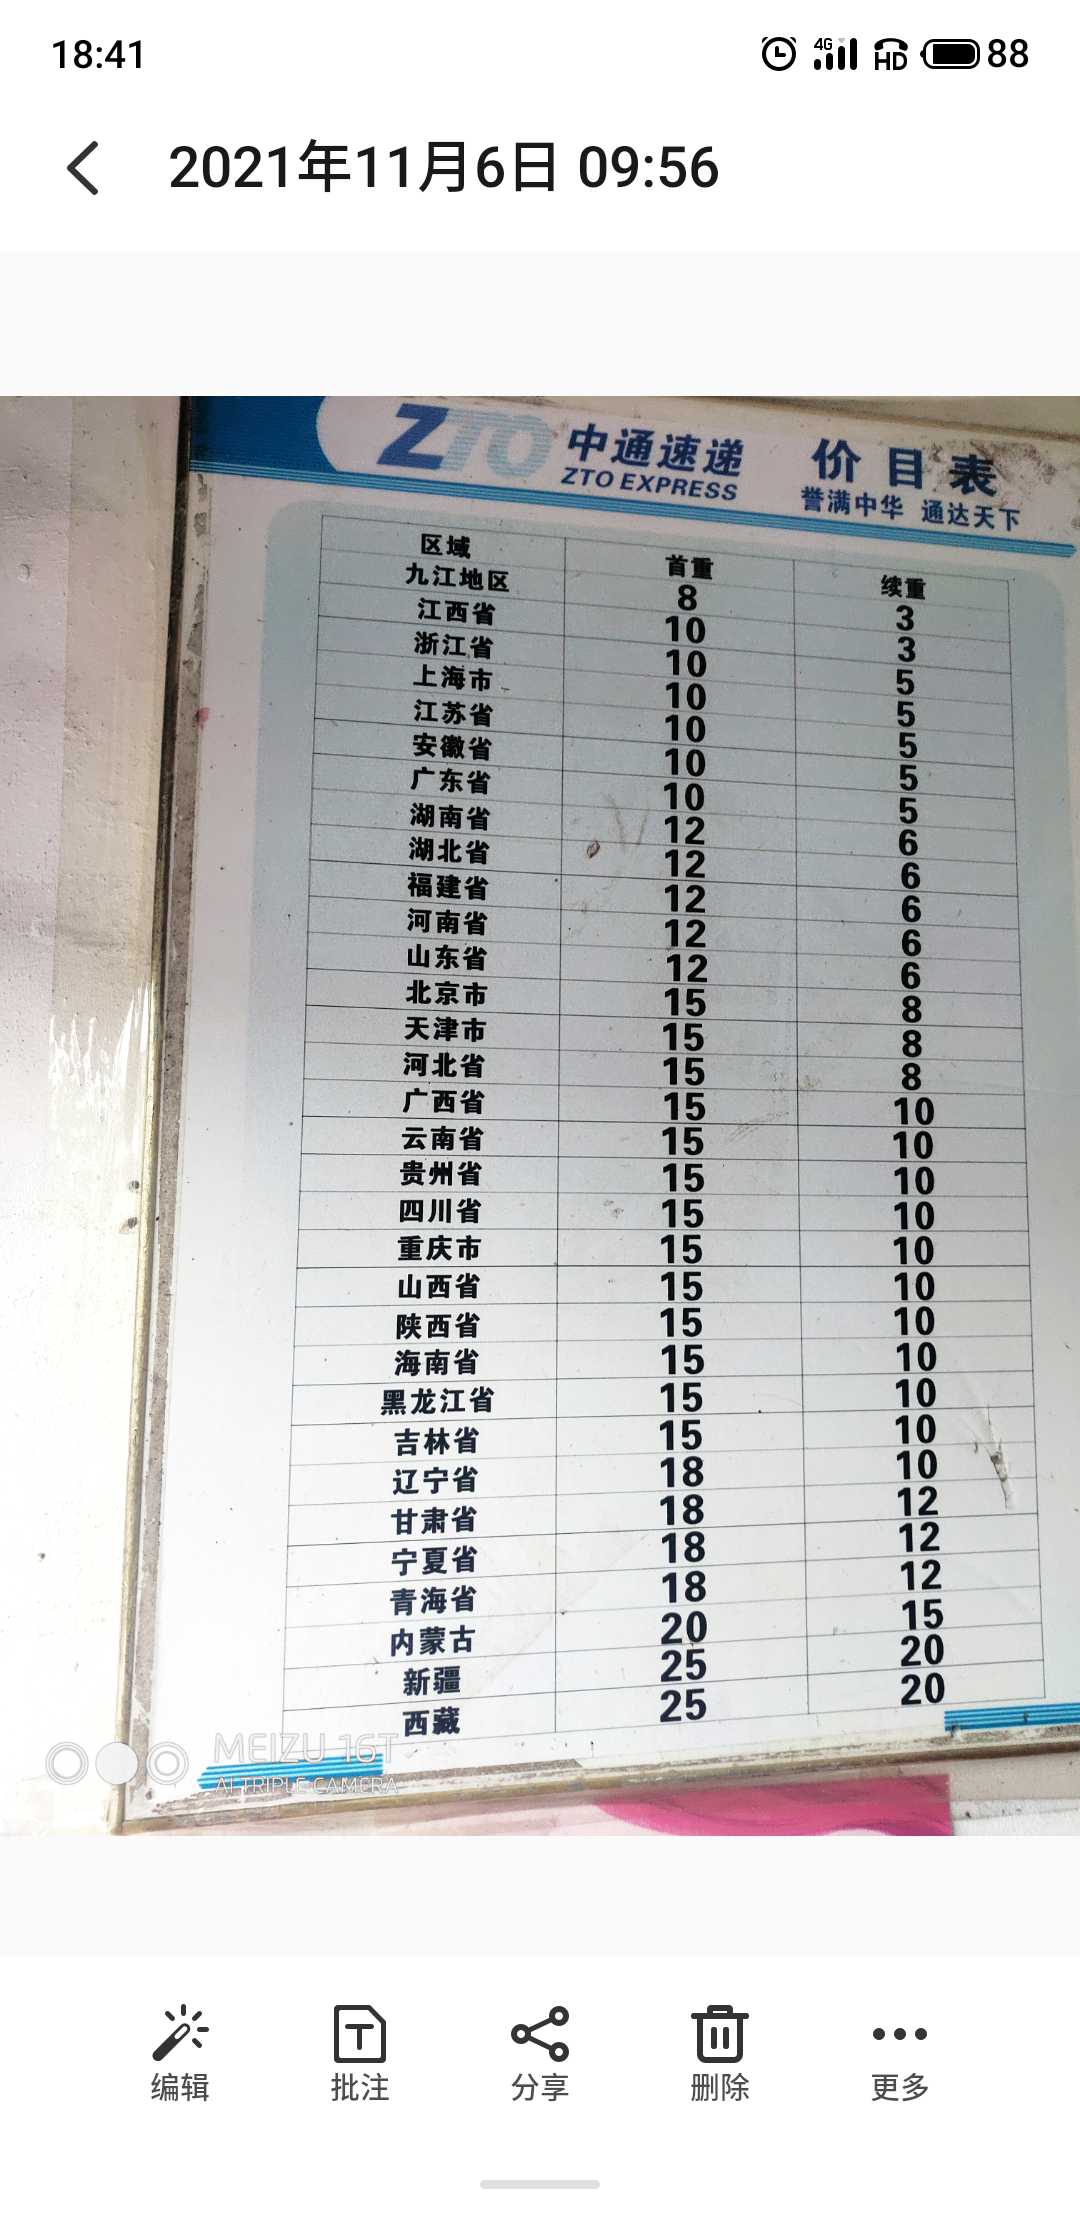 18:41 4G HD 88
2021年11月6日 09:56
ZTO 中通速递 价目表
ZTO EXPRESS 誉满中华 通达天下
区域 首重 续重
九江地区 8 3
江西省 10 3
浙江省 10 5
上海市 10 5
江苏省 10 5
安徽省 10 5
广东省 10 5
湖南省 12 6
湖北省 12 6
福建省 12 6
河南省 12 6
山东省 12 6
北京市 15 8
天津市 15 8
河北省 15 8
广西省 15 10
云南省 15 10
贵州省 15 10
四川省 15 10
重庆市 15 10
山西省 15 10
陕西省 15 10
海南省 15 10
黑龙江省 15 10
吉林省 15 10
辽宁省 18 10
甘肃省 18 12
宁夏省 18 12
青海省 18 12
内蒙古 20 15
新疆 25 20
西藏 25 20
MEIZU 16T
AI TRIPLE CAMERA
编辑 批注 分享 删除 更多